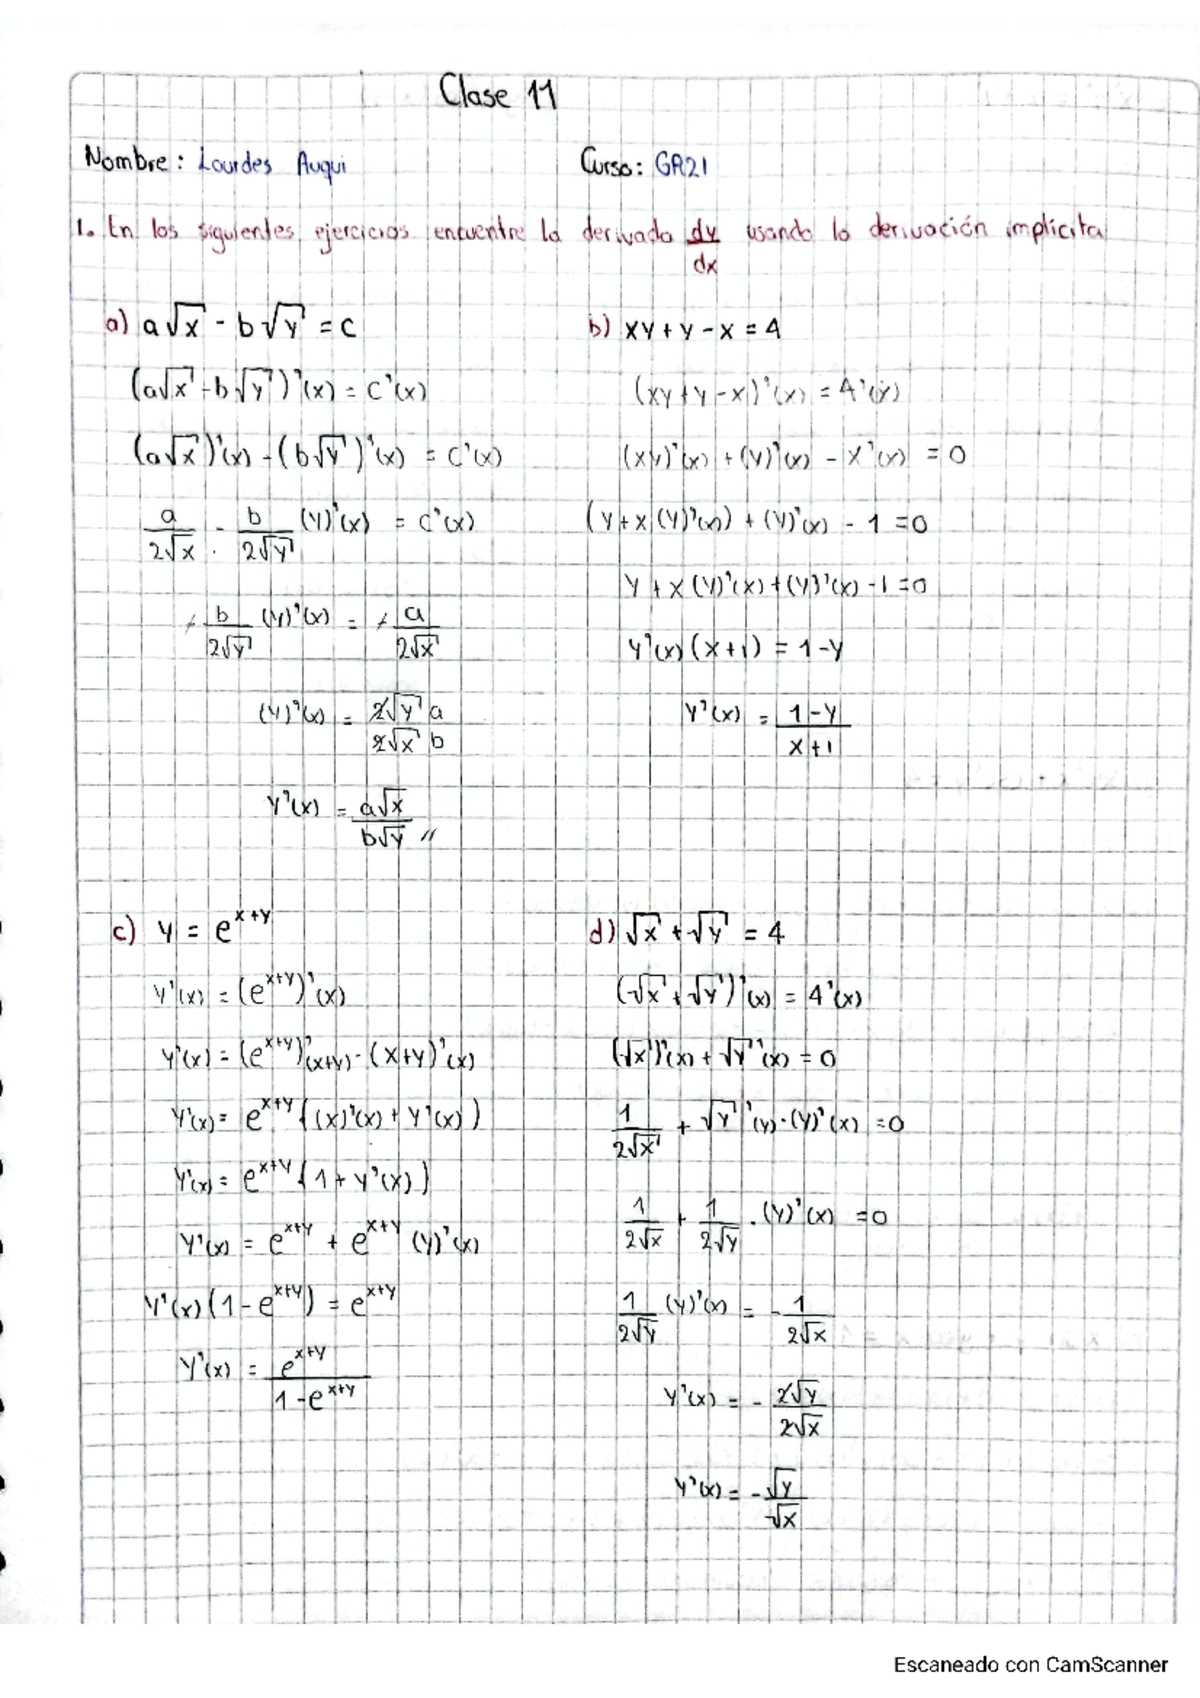 Clase 11
Nombre: Lourdes Auqui
Curso: GR21
1. En los siguientes ejercicios encuentre la derivada dy/dx usando la derivación implícita
a) a√x - b√y = c
(a√x - b√y)'(x) = c'(x)
(a√x)'(x) - (b√y)'(x) = c'(x)
a/2√x - b/2√y (y)'(x) = c'(x)
- b/2√y (y)'(x) = - a/2√x
(y)'(x) = 2√y a/2√x b
y'(x) = a√x/b√y //
b) xy + y - x = 4
(xy + y - x)'(x) = 4'(x)
(xy)'(x) + (y)'(x) - x'(x) = 0
(y + x(y)'(x)) + (y)'(x) - 1 = 0
y + x(y)'(x) + (y)'(x) - 1 = 0
y'(x)(x+1) = 1-y
y'(x) = 1-y/x+1
c) y = e^x+y
y'(x) = (e^x+y)'(x)
y'(x) = (e^x+y)'(x+y) · (x+y)'(x)
y'(x) = e^x+y ((x)'(x) + y'(x))
y'(x) = e^x+y (1 + y'(x))
y'(x) = e^x+y + e^x+y (y)'(x)
y'(x)(1 - e^x+y) = e^x+y
y'(x) = e^x+y/1-e^x+y
d) √x + √y = 4
(√x + √y)'(x) = 4'(x)
(√x)'(x) + √y'(x) = 0
1/2√x + √y'(y)·(y)'(x) = 0
1/2√x + 1/2√y . (y)'(x) = 0
1/2√y (y)'(x) = - 1/2√x
y'(x) = - 2√y/2√x
y'(x) = - √y/√x
Escaneado con CamScanner